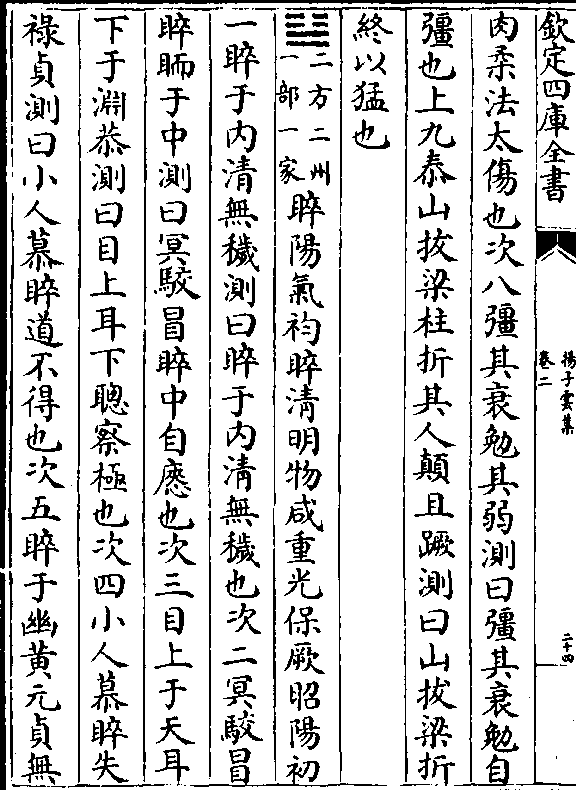 欽定四庫全書
揚子雲集
卷二
二十四
肉柔法太傷也次八彊其衰勉其弱測曰彊其衰勉自
彊也上九泰山拔梁柱折其人顛且蹶測曰山拔梁折
終以猛也
二方二州
一部一家
睟陽氣袀睟清明物咸重光保厥昭陽初
一睟于内清無穢測曰睟于内清無穢也次二冥駮冒
睟䎡于中測曰冥駮冒睟中自應也次三目上于天耳
下于淵恭測曰目上耳下聰察極也次四小人慕睟失
祿貞測曰小人慕睟道不得也次五睟于幽黄元貞無